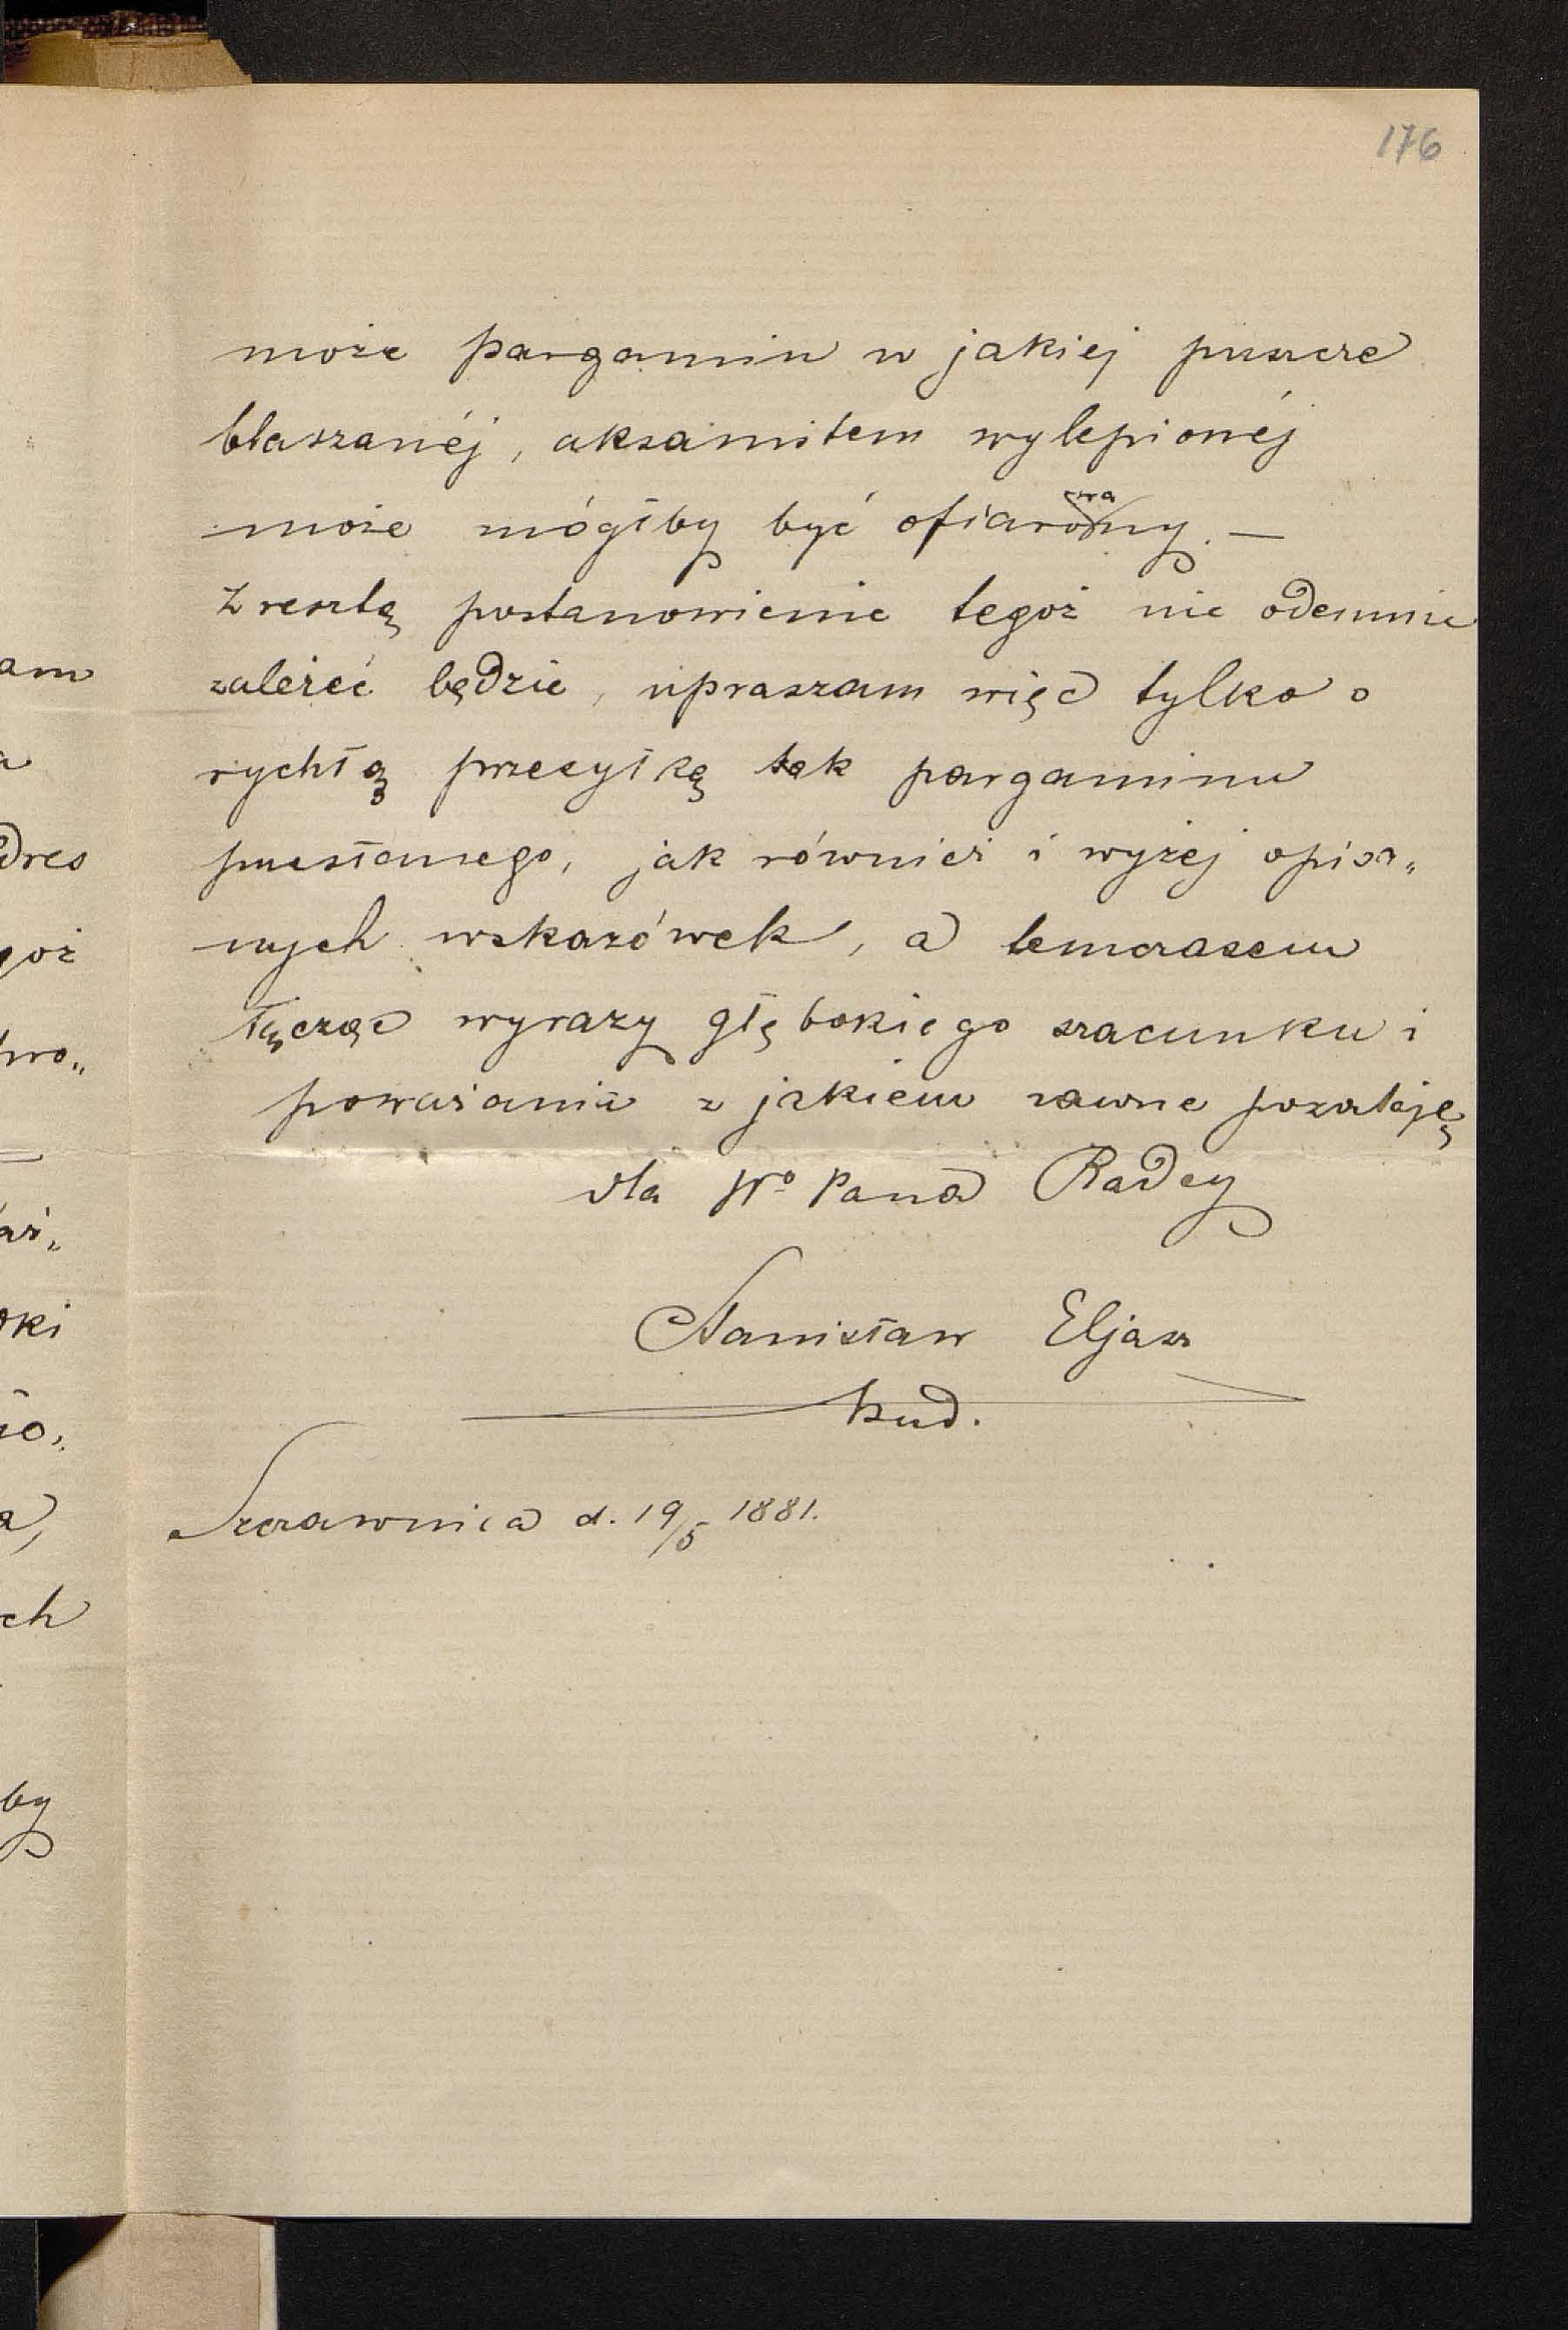 176
może pargamin w jakiej puszcze
blaszanéj, aksamitem wylepionéj
może mógłby być ofiarowany. —
Zresztą postanowienie tegoż nie odemnie
zależeć będzie, upraszam więc tylko o
rychłą przesyłkę tak pargaminu
przesłanego, jak również i wyżej opisa„
nych wskazówek, a temczasem
łączę wyrazy głębokiego szacunku i
poważania z jakiem zawsze pozostaję
dla Wº Pana Radcy
Stanisław Eljasz
bud.
Szczawnica d. 19/5 1881.
am
a
dres
goż
wo„
aż„
oki
ło„
a,
ch
by